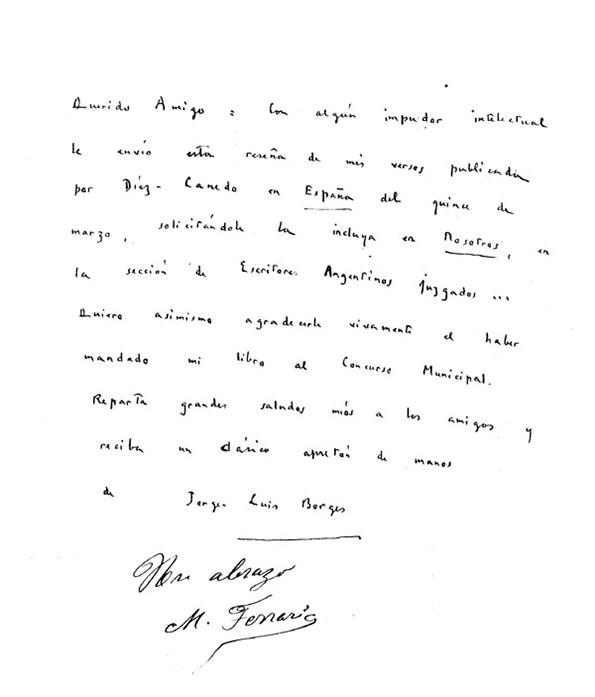 Querido Amigo: Con algún impudor intelectual
le envío esta reseña de mis versos publicada
por Díez-Canedo en España del quince de
marzo, solicitándole la incluya en Nosotros, en
la sección de Escritores Argentinos juzgados ...
Quiero asimismo agradecerle vivamente el haber
mandado mi libro al Concurso Municipal.
Reparta grandes saludos míos a los amigos y
reciba un clásico apretón de manos
de Jorge Luis Borges
Un abrazo
M. Ferraris